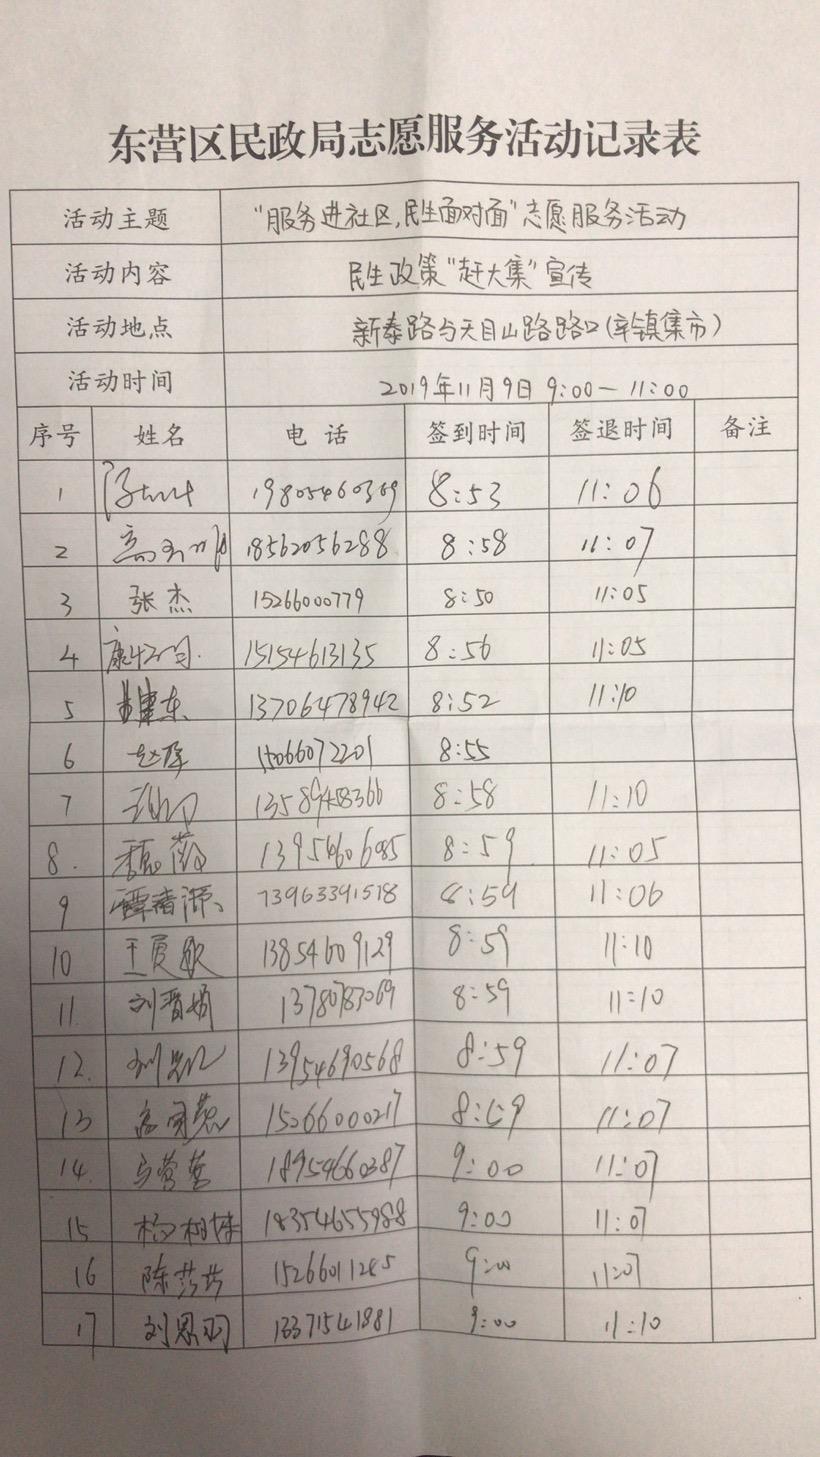 东营区民政局志愿服务活动记录表
活动主题 “服务进社区,民生面对面”志愿服务活动
活动内容 民生政策“赶大集”宣传
活动地点 新泰路与天目山路路口(辛镇集市)
活动时间 2019年11月9日 9:00—11:00
序号 姓名 电话 签到时间 签退时间 备注
1 19805460369 8:53 11:06
2 18562056288 8:58 11:07
3 张杰 15266000779 8:50 11:05
4 15154613135 8:56 11:05
5 13706478942 8:52 11:10
6 15066072201 8:55
7 8:58 11:10
8. 魏薇 13954606985 8:59 11:05
9 谭清源 13963391518 8:59 11:06
10 王夏歌 13854609129 8:59 11:10
11 刘晋娟 8:59 11:10
12. 刘凯 13954690568 8:59 11:07
13 15266000217 8:59 11:07
14. 马营营 18954660387 9:00 11:07
15 18354655988 9:00 11:07
16 陈芳芳 15266011245 9:00 11:07
17 刘思羽 13371541881 9:00 11:10